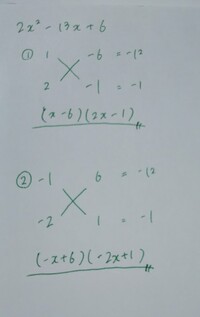 2x² - 13x + 6
① 1 -6 = -12
2 -1 = -1
(x-6)(2x-1)
② -1 6 = -12
-2 1 = -1
(-x+6)(-2x+1)